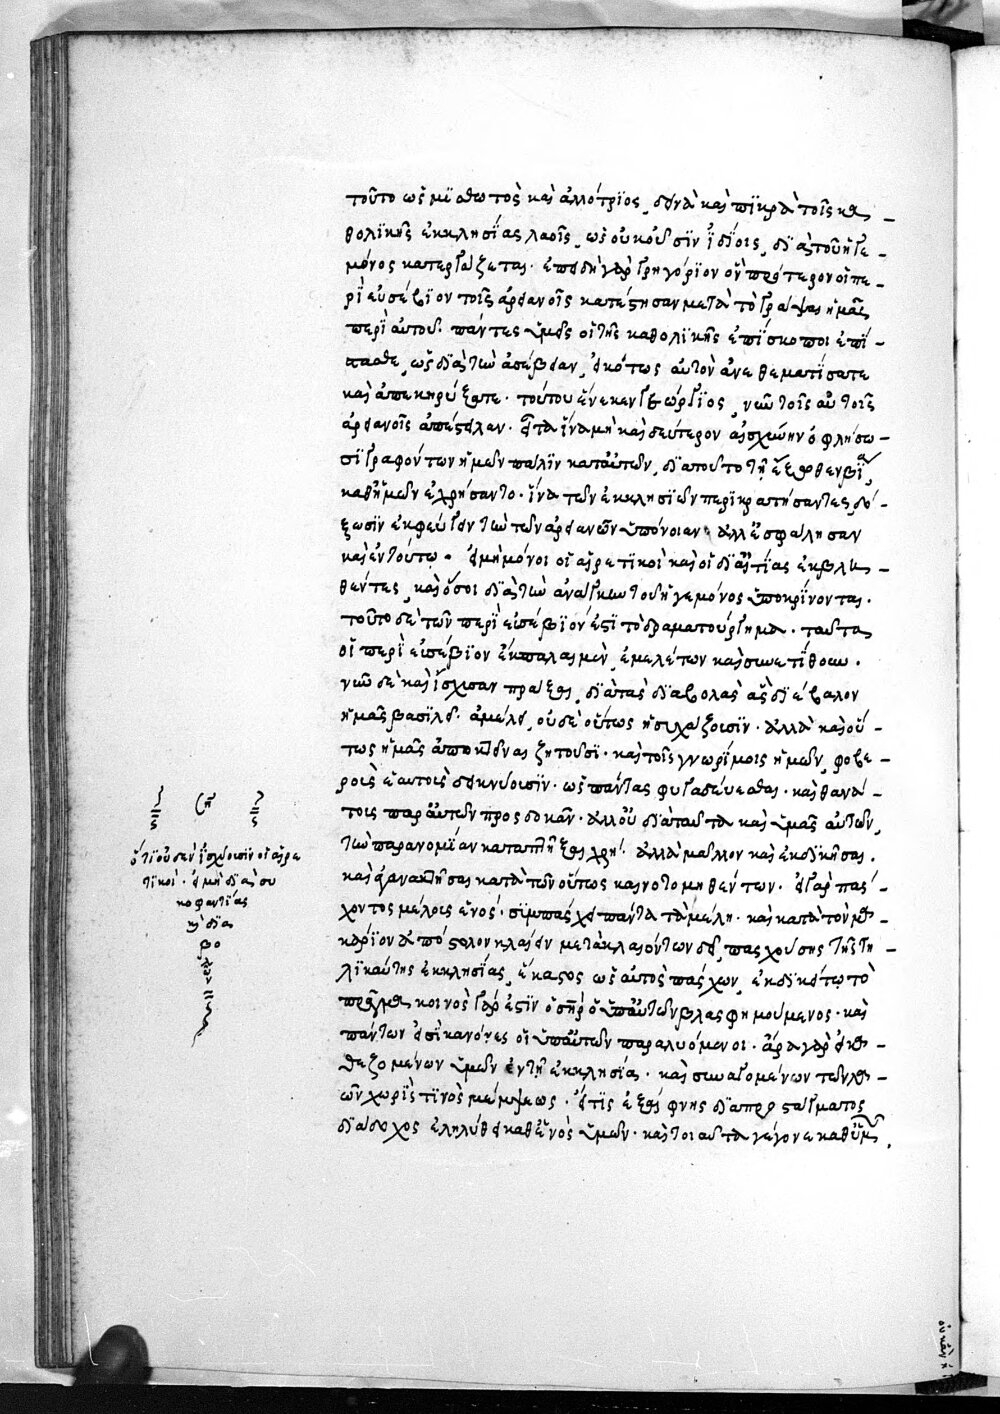 τοῦτο ὡς μισθωτὸς καὶ ἀλλότριος, δεινὰ καὶ πικρὰ τοῖς κα-
θολικῆς ἐκκλησίας λαοῖς, ὡς οὐκ οὖσιν ἰδίοις, διὰ τοῦ ἡγε-
μόνος κατεργάζεται. ἐπειδὴ γὰρ γρηγόριον ὃν πρότερον οἱ πε-
ρὶ εὐσέβιον τοῖς ἀρειανοῖς κατέστησαν μετὰ τὸ γράψαι ἡμᾶς
περὶ αὐτοῦ. πάντες ὑμεῖς οἱ τῆς καθολικῆς ἐπίσκοποι ἐπί-
στασθε, ὡς διὰ τὴν ἀσέβειαν, εἰκότως αὐτὸν ἀνεθεματίσατε
καὶ ἀπεκηρύξατε. τούτου ἕνεκεν γεώργιος, νῦν τοῖς αὐτοῖς
ἀρειανοῖς ἀπέστειλαν. εἶτα ἵνα μὴ καὶ δεύτερον αἰσχύνην ὀφλήσω-
σι γραφόντων ἡμῶν πάλιν κατ' αὐτῶν, διὰ τοῦτο τῇ ἔξωθεν βίᾳ
καθ' ἡμῶν ἐχρήσαντο. ἵνα τῶν ἐκκλησιῶν περικρατήσαντες δό-
ξωσιν ἐκφεύγειν τὴν τῶν ἀρειανῶν ὑπόνοιαν. ἀλλ' ἐσφάλησαν
καὶ ἐν τούτῳ. εἰ μὴ μόνοι οἱ αἱρετικοὶ καὶ οἱ δι' αἰτίας ἐκβλη-
θέντες, καὶ ὅσοι διὰ τὴν ἀνάγκην τοῦ ἡγεμόνος ὑποκρίνονται.
τοῦτο δὲ τῶν περὶ εὐσέβιον ἐστὶ τὸ δραματούργημα. ταῦτα
οἱ περὶ εὐσέβιον ἔκπαλαι μὲν, ἐμελέτων καὶ συνετίθουν.
νῦν δὲ καὶ ἴσχυσαν πρᾶξαι, διὰ τὰς διαβολὰς ἃς διέβαλον
ἡμᾶς βασιλεῖ. ἀμέλει, οὐδὲ οὕτως ἡσυχάζουσιν. ἀλλὰ καὶ οὕ-
τως ἡμᾶς ἀποκτεῖναι ζητοῦσι. καὶ τοῖς γνωρίμοις ἡμῶν, φοβε-
ροὺς ἑαυτοὺς δεικνύουσιν. ὡς πάντας φυγαδεύεσθαι. καὶ θανά-
τους παρ' αὐτῶν προσδοκᾶν. ἀλλ' οὐ διὰ ταῦτα καὶ ὑμᾶς αὐτῶν,
τὴν παρανομίαν καταπλῆξαι χρή. ἀλλὰ μᾶλλον καὶ ἐκδικῆσαι.
καὶ ἀγανακτῆσαι κατὰ τῶν οὕτως καινοτομηθέντων. εἰ γὰρ πάσ-
χοντος μέλους ἑνός. συμπάσχει πάντα τὰ μέλη. καὶ κατὰ τὸν μα-
κάριον ἀπόστολον κλαίειν μετὰ κλαιόντων δεῖ, πασχούσης τῆς τη-
λικαύτης ἐκκλησίας, ἕκαστος ὡς αὐτὸς πάσχων, ἐκδικείτω τὸ
πρᾶγμα κοινὸς γάρ ἐστιν ὁ σωτὴρ ὁ ὑπ' αὐτῶν βλασφημούμενος. καὶ
πάντων εἰσὶ κανόνες οἱ ὑπ' αὐτῶν παραλυόμενοι. ἆρα γὰρ εἰ κα-
θεζομένων ὑμῶν ἐν τῇ ἐκκλησίᾳ. καὶ συναγομένων τῶν λα-
ῶν χωρίς τινος μέμψεως. εἴ τις ἐξαίφνης διὰ προστάγματος
διάδοχος ἐληλύθει καθ' ἑνὸς ὑμῶν. καὶ τοιαῦτα γέγονε καθ' ὑμῶν,
ση
ὅτι οὐδὲν ἰσχύουσιν οἱ αἱρε
τικοί. εἰ μὴ διὰ συ
κοφαντίας
καὶ δια
βο
λῶν